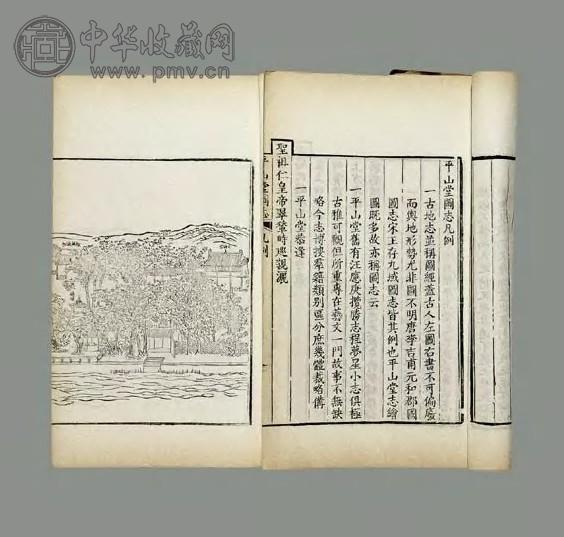 中华收藏网
www.pmv.cn
平山堂圖志凡例
一古地志並稱圖經蓋古人左圖右書不可偏廢
而輿地形勢尤非圖不明唐李吉甫元和郡國
圖志宋王存九域圖志皆其例也平山堂志繪
圖既多故亦稱圖志云
一平山堂舊有汪應庚攬勝志程夢星小志俱極
古雅可觀但所重專在藝文一門故事不無缺
略今志博搜羣籍類別區分庶幾體裁略備
一平山堂恭逢
聖祖仁皇帝翠華時巡親灑
平山堂圖志 凡例